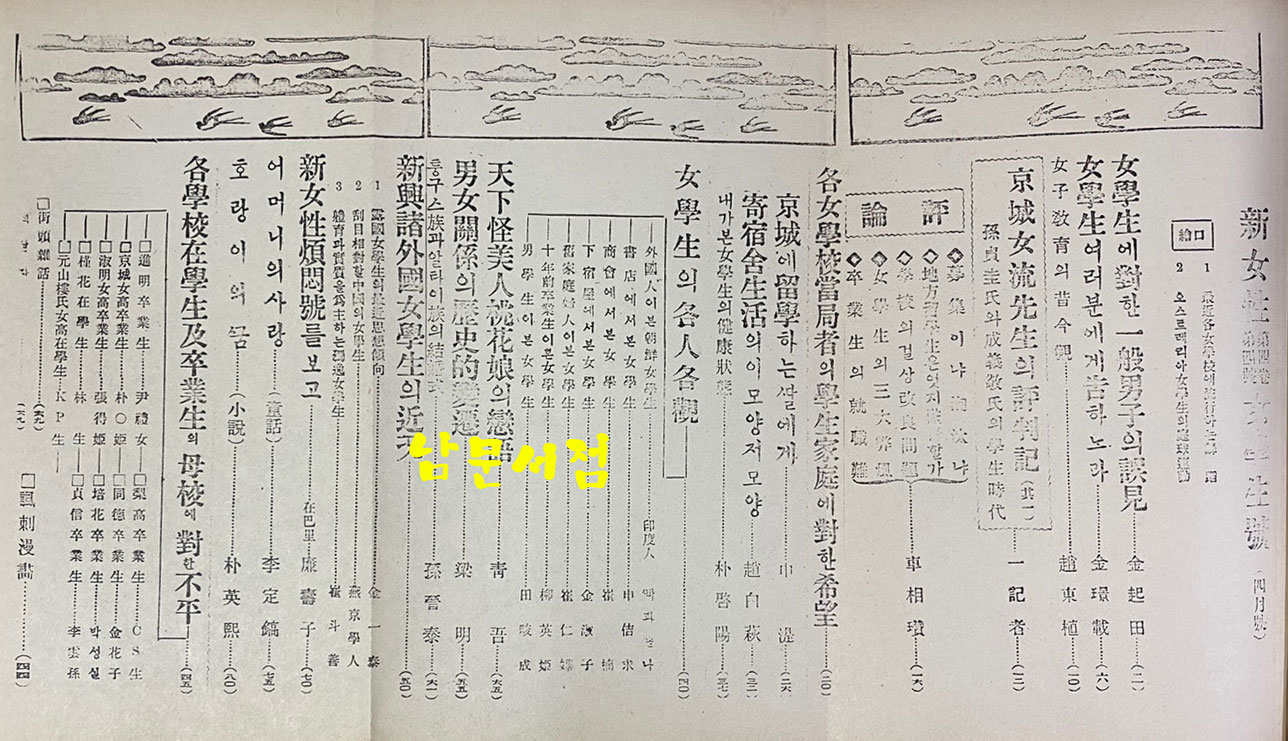 新女性 第四卷 第四號 女學生號 (四月號)
口繪
1
2 오스트랠리아女學生의
女學生에對한一般男子의誤見 金起田 (二)
女學生여러분에게告하노라 金環載 (六)
女子敎育의昔今觀 趙東植 (一〇)
京城女流先生의評判記 (其一) 一記者
孫貞圭氏와成義敬氏의學生時代
評論
◇募集이냐
◇地方留學生은엇지
◇學校의걸상改良問題
◇女學生의三大
◇卒業生의就職難
車相瓚 (一六)
各女學校當局者의學生家庭에對한希望 (二〇)
京城에留學하는쌀에게 申湜 (二六)
寄宿舍生活의이모양저모양 趙白萩
내가본女學生의健康狀態 朴啓陽 (三七)
女學生의各人各觀 (四〇)
外國人이본朝鮮女學生 印度人
書店에서본女學生 申佶求
商會에서본女學生 崔楠
下宿屋에서본女學生 金淑子
舊家庭婦人이본女學生 崔仁
十年前卒業生이본女學生 柳英姬
男學生이본女學生 田畯成
天下怪美人桃花娘의戀 靑吾 (六五)
男女關係의歷史的變遷 梁明 (五五)
퉁구스族과알타이族의結婚式 孫晉泰 (六一)
新興諸外國女學生의近 (五〇)
1 露國女學生의最近思想傾向 金一泰
2 刮目相對할中國의女學生 燕京學人
3 體育과實質을爲主하는獨逸女學生 崔斗善
新女性煩悶號를보고 在巴里 廉壽子 (七〇)
어머니의사랑 (童話) 李定鎬 (七五)
호랑이의 (小說) 朴英熙 (八〇)
各學校在學生及卒業生의母校에對한不平 (四五)
□進明卒業生 尹禮女
□京城女高卒業生 朴○姬
□淑明女高卒業生 張得姬
□槿花在學生 林生
□元山樓氏女高在學生 KP生
□梨高卒業生 CS生
□同德卒業生 金花子
□培花卒業生 박성실
□貞信卒業生 李雲孫
□街頭雜話 (六九)
□諷刺漫畵 (四四)
남문서점